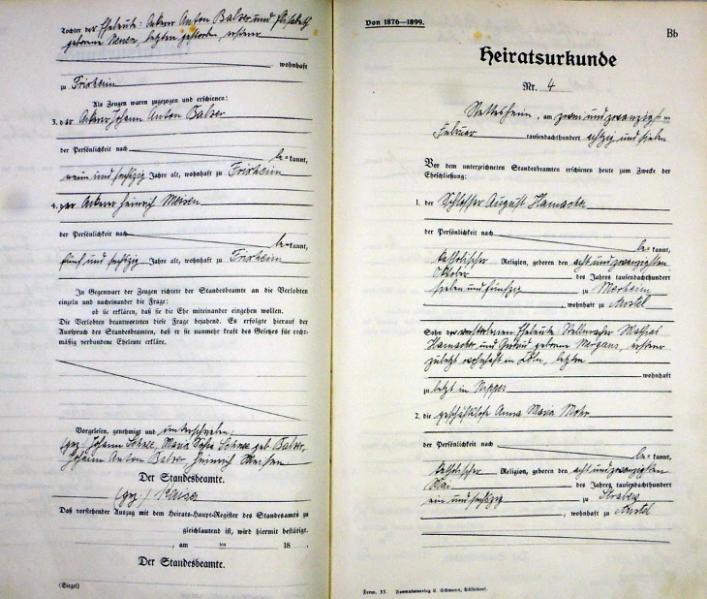 Tochter der Eheleute: Ackerer Anton Balzer und Elisabeth
geborene Neuen, letztere gestorben, ersterer
wohnhaft
zu Frixheim
Als Zeugen waren zugezogen und erschienen:
3. der Ackerer Johann Anton Balzer
der Persönlichkeit nach
be kannt,
neun und sechzig Jahre alt, wohnhaft zu Frixheim
4. der Ackerer Heinrich Meisen
der Persönlichkeit nach
be kannt,
fünf und sechzig Jahre alt, wohnhaft zu Frixheim
In Gegenwart der Zeugen richtete der Standesbeamte an die Verlobten
einzeln und nacheinander die Frage:
ob sie erklären, daß sie die Ehe miteinander eingehen wollen.
Die Verlobten beantworteten diese Frage bejahend. Es erfolgte hierauf der
Ausspruch des Standesbeamten, daß er sie nunmehr kraft des Gesetzes für recht-
mäßig verbundene Eheleute erkläre.
Vorgelesen, genehmigt und unterschrieben
(gez.) Johann Schnee, Maria Schnee geb. Balzer,
Johann Anton Balzer, Heinrich Meisen
Der Standesbeamte.
(gez.)
Daß vorstehender Auszug mit dem Heirats-Haupt-Register des Standesamts zu
gleichlautend ist, wird hiermit bestätigt.
, am ten 18 .
Der Standesbeamte.
(Siegel)
Von 1876—1899.
Bb
Heiratsurkunde
Nr. 4
Nettesheim, am zwei und zwanzigsten
Februar tausendachthundert achtzig und sieben
Vor dem unterzeichneten Standesbeamten erschienen heute zum Zwecke der
Eheschließung:
1. der Schlosser August Hamacher
der Persönlichkeit nach
be kannt,
katholischer Religion, geboren den acht und zwanzigsten
Oktober des Jahres tausendachthundert
sieben und fünfzig zu Merheim
, wohnhaft zu Anstel
Sohn der verstorbenen Eheleute Mathias
Hamacher und Gertrud geborene ersterer
zuletzt wohnhaft in Cöln, letztere
wohnhaft
zuletzt in Nippes
2. die geschäftslose Anna Maria Mohr
der Persönlichkeit nach
be kannt,
katholischer Religion, geboren den acht und zwanzigsten
Mai des Jahres tausendachthundert
ein und sechzig zu Straberg
, wohnhaft zu Anstel
Form. 33.